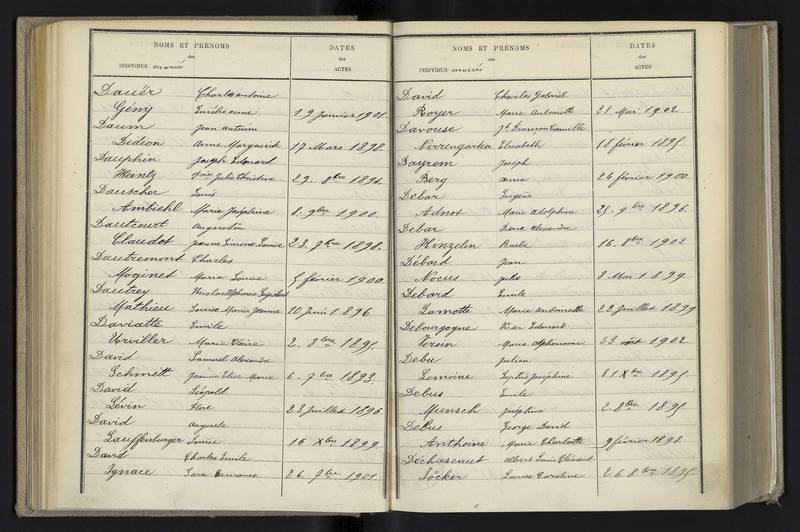 NOMS ET PRÉNOMS
des
INDIVIDUS mariés
DATES
des
ACTES
Dauër Charles antoine
Gény anne 19 Janvier 1901.
Daum Jean antoine
Didion Anne Marguerite 17 Mars 1898.
Dauphin Joseph Edouard
Heintz Julie Christine 29. 8bre 1894.
Dauscher Louis
Ambiehl Marie Joséphine 8. 9bre 1900.
Dautcourt Augustin
Claudot Jeanne Simone Louise 23. 7bre 1898.
Dautremont Charles
Moginet Marie Louise 5 février 1900.
Dautrey Nicolas Alphonse Léopold
Mathieu Louise Marie Jeanne 10 Juin 1896.
Daviatte Emile
Urviller Marie Claire 2. 8bre 1895.
David Samuel Alexandre
Schmitt Jeanne Elise Marie 6. 7bre 1893.
David Léopold
Lévin 23 Juillet 1896
David Auguste
Lauffenburger Louise 16 Xbre 1899.
David Charles Emile
Ignace Sara Ermance 26. 7bre 1901
NOMS ET PRÉNOMS
des
INDIVIDUS mariés
DATES
des
ACTES
David Charles Gabriel
Royer Marie Antoinette 21 Mai 1902
Davouse Jh François Camille
Nerrengarten Elisabeth 18 février 1895
Dayrem Joseph
Berg anna 24 février 1900.
Debar Eugène
Adnot Marie Adolphine 25. 9bre 1896.
Debar René Alexandre
Hinzelin Barbe 16. 8bre 1902
Débard Jean
Nocus Julie 8 Mai 1899
Debard Emile
Lamotte Marie Antoinette 22 Juillet 1899
Debourgogne Edouard
Versin Marie Alphonsine 23 août 1902
Debu Julien
Lemoine Sophie Joséphine 21 Xbre 1895
Debus Emile
Munsch Joséphine 2. 8bre 1895
Debus George David
Anthoine Marie Charlotte 9 février 1898.
Déchaseaut Albert Louis Clément
Söcker Louise Caroline 26. 8bre 1895